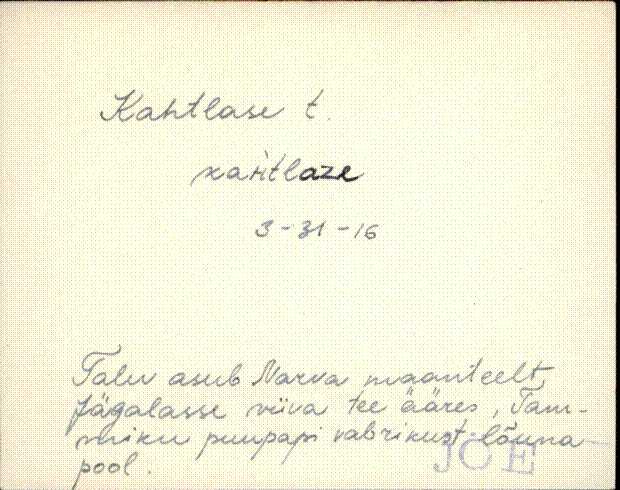 Kahtlase t.
kahtlaze
3-31-16
Talu asub Narva maanteelt
Jägalasse viiva tee ääres, Tam-
miku puupapi vabrikust lõuna
pool.
JÕE